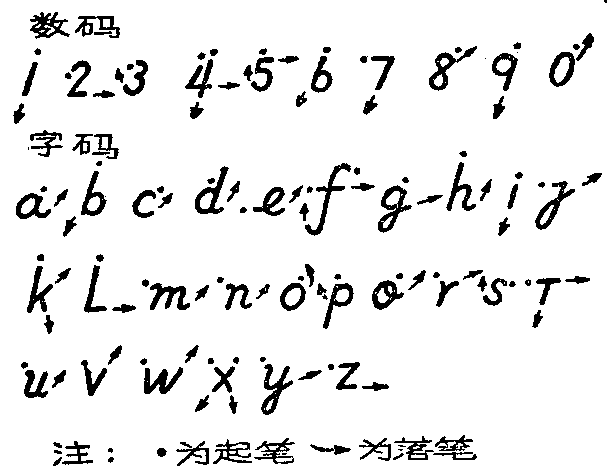 数码
1 2 3 4 5 6 7 8 9 0
字码
a b c d e f g h i j
k L m n o p q r s T
u v w x y z
注：•为起笔 →为落笔